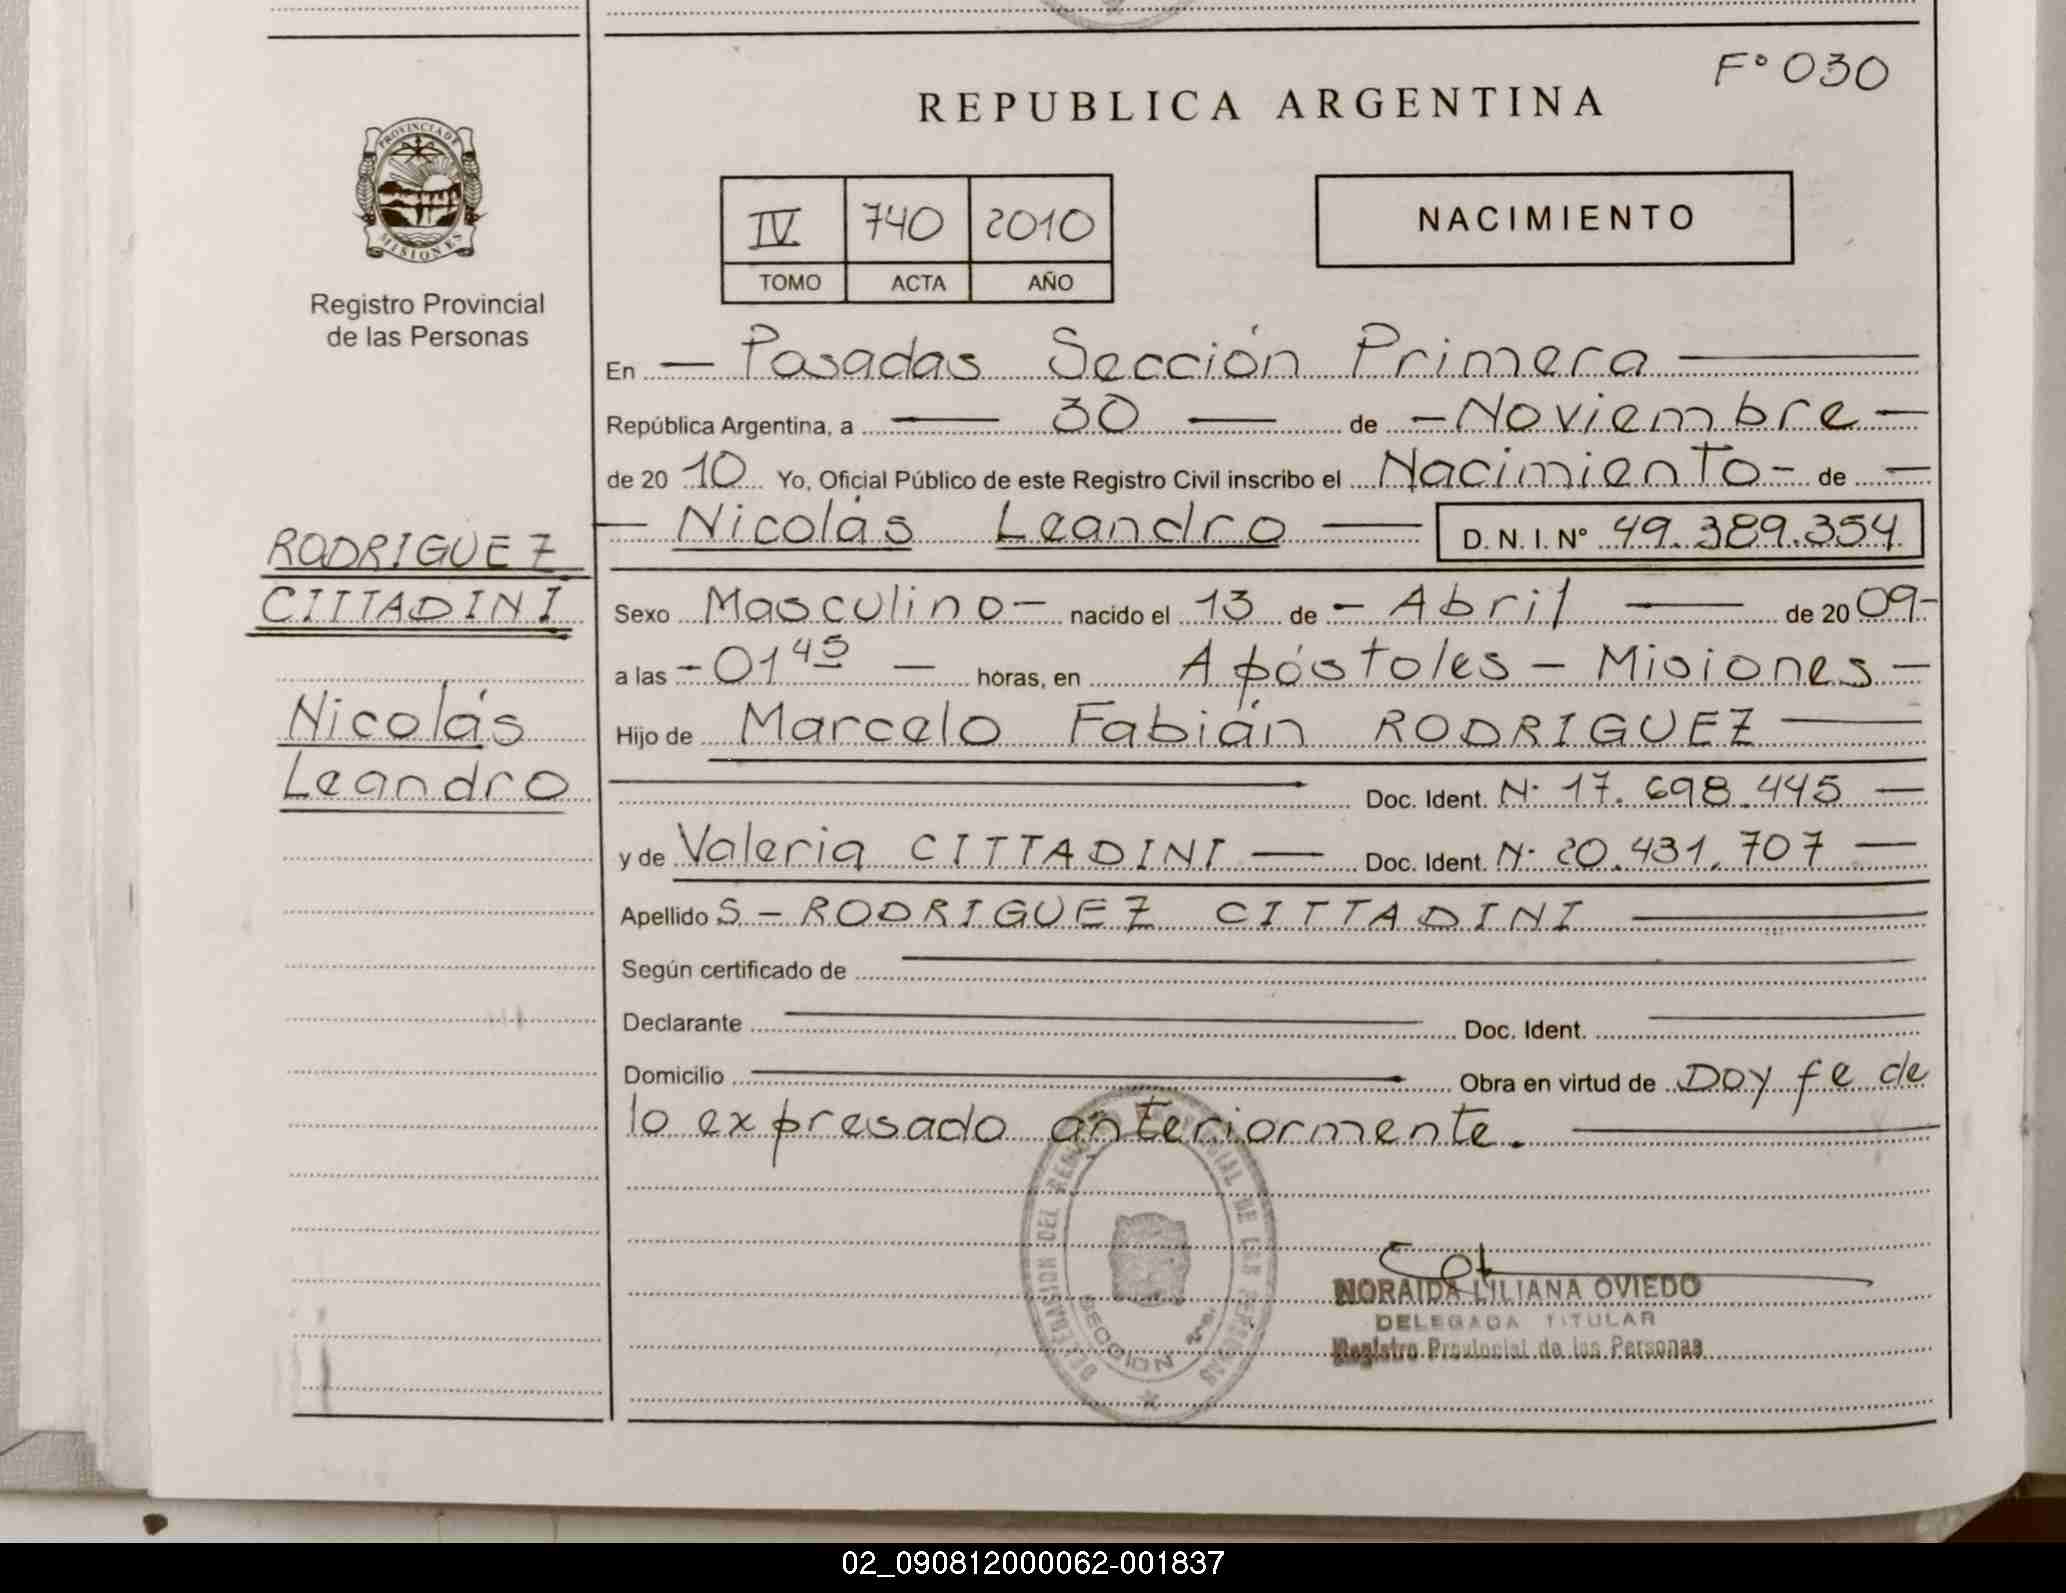 F° 030
REPUBLICA ARGENTINA
PROVINCIA DE
MISIONES
Registro Provincial
de las Personas
IV 740 2010
TOMO ACTA AÑO
NACIMIENTO
En — Posadas Sección Primera —
República Argentina, a — 30 — de — Noviembre —
de 20 10 Yo, Oficial Público de este Registro Civil inscribo el Nacimiento - de —
— Nicolás Leandro — D. N. I. N° 49.389.354
RODRIGUEZ
CITTADINI
Nicolás
Leandro
Sexo Masculino — nacido el 13 de — Abril — de 20 09 -
a las - 01 45 — horas, en Apóstoles — Misiones —
Hijo de Marcelo Fabián RODRIGUEZ —
Doc. Ident. N· 17.698.445 —
y de Valeria CITTADINI — Doc. Ident. N· 20.431.707 —
Apellido S — RODRIGUEZ CITTADINI —
Según certificado de —
Declarante — Doc. Ident. —
Domicilio — Obra en virtud de Doy fe de
lo expresado anteriormente. —
DEL REGISTRO PROVINCIAL DE LAS PERSONAS
SECCION 1ra.
NORAIDA LILIANA OVIEDO
DELEGADA TITULAR
Registro Provincial de las Personas
02_090812000062-001837